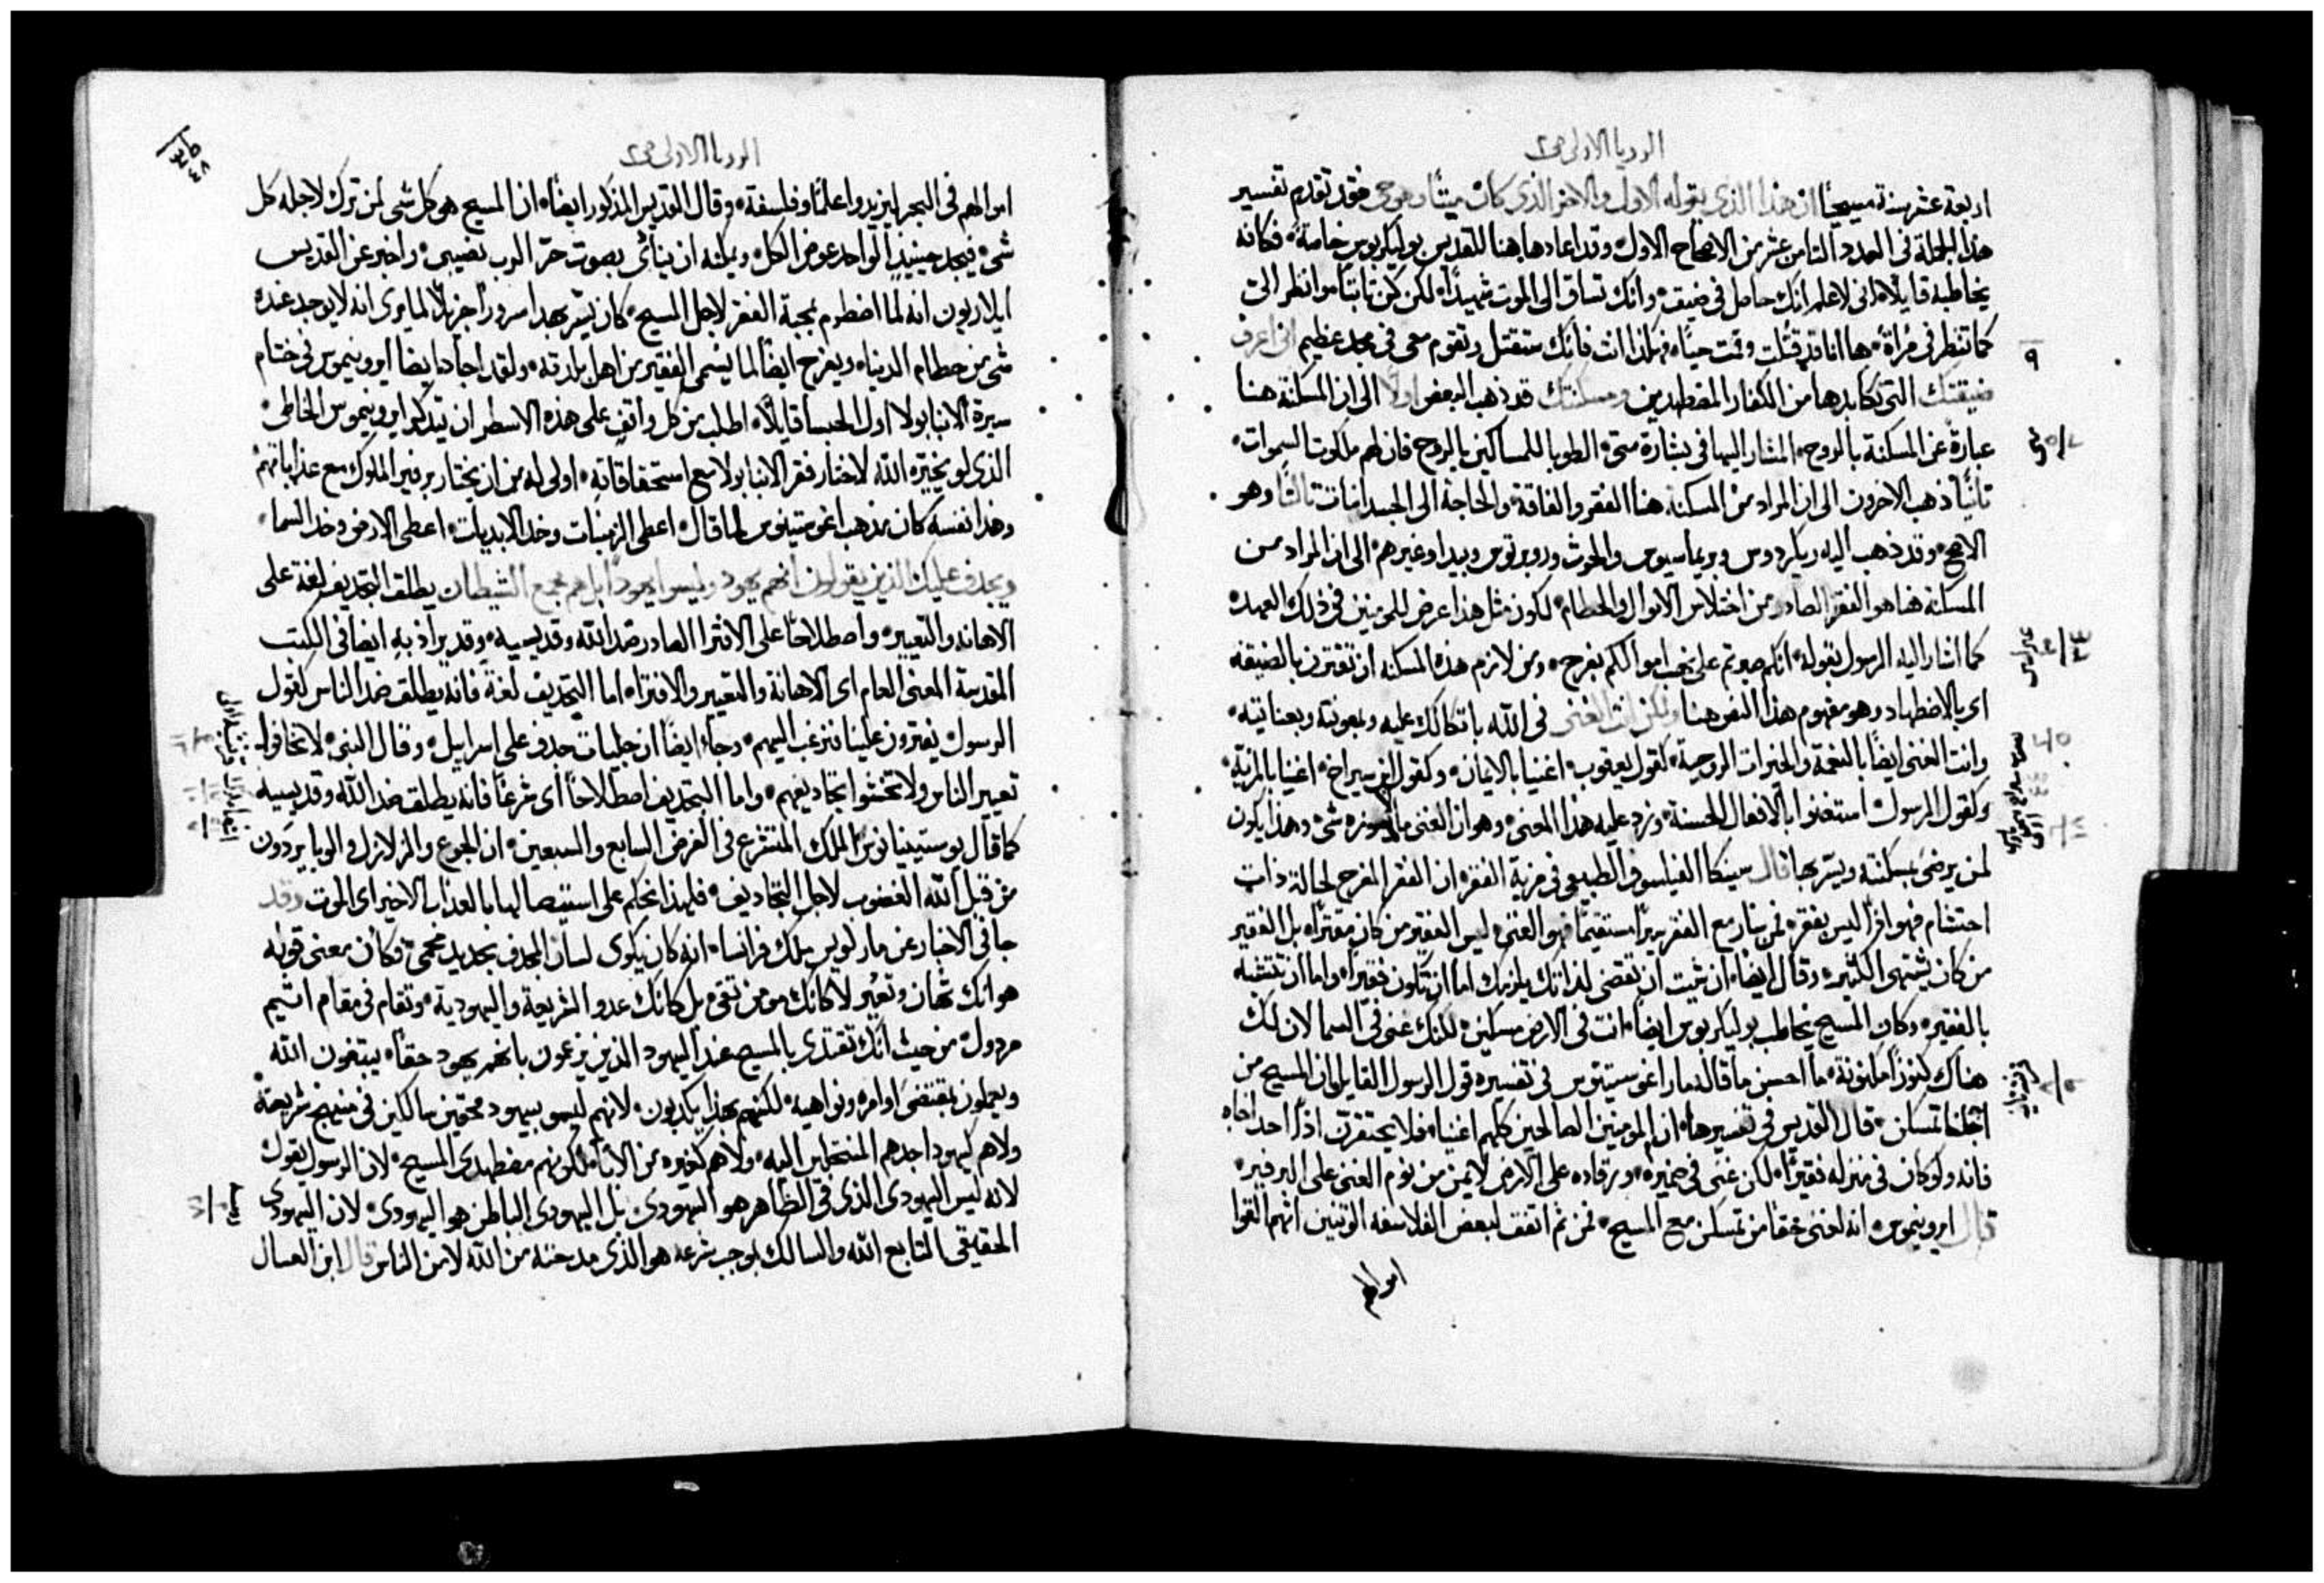 الرويا الاولى ص٢
اربعة عشر سنة مسيحيًا ان هذا الذي بقوله الاول والاخر الذي كان ميتًا وهو حي فقد تقدم تفسير
هذه الجملة في العدد الثامن عشر من الاصحاح الاول وقد اعادها هنا للقديس بوليكربوس خاصةً فكانه
يخاطبه قايلًا اني لاعلم انك حاصل في ضيقة وانك تساق الى الموت شهيدًا لكن كن ثابتًا وانظر اليّ
كما تنظر في مراة ها انا قد قتلت وقمت حيًا فهكذا انت فانك ستقتل وتقوم معي في مجد عظيم اني اعرف
٩
ضيقتك التي تكابدها من الكفار المضطهدين ومسكنتك قد ذهب البعض اولًا الى ان المسكنة هنا
عبارة عن المسكنة بالروح المشار اليها في بشارة متى الطوبا للمساكين بالروح فان لهم ملكوت السموات
ثانيًا ذهب الاخرون الى ان المراد من المسكنة هنا الفقر والفاقة والحاجة الى الجسدانيات ثالثًا وهو
الاصح وقد ذهب اليه ريكردوس وبريماسيوس والحوث وروبرتوس وبيدا وغيرهم الى ان المراد من
المسكنة هنا هو الفقر الصادر من اختلاس الاموال والحطام لكون مثل هذا عرض للمومنين في ذلك العهد
كما اشار اليه الرسول بقوله انكم صبرتم على نهب اموالكم بفرح ومن لازم هذه المسكنة ان تقترن بالضيقة
اي بالاضطهاد وهو مفهوم هذا النص هنا ولكن انت الغني في الله باتكالك عليه وبمعونته وبعنايته
وانت الغني ايضًا بالنعمة والخيرات الروحية كقول يعقوب اغنيا بالايمان وكقول ابن سيراخ اغنيا بالمزية
وكقول الرسول استغنوا بالافعال الحسنة وزد عليه هذا المعنى وهو ان الغني ما لا يعوزه شي وهذا يكون
لمن يرضى بمسكنته ويسر بها قال سينكا الفيلسوف الطبيعي في مزية الفقر ان الفقر المفرح لحالة ذات
احتشام فهو اذًا ليس بفقر فمن سار مع الفقر سيرًا مستقيمًا فهو الغني ليس الفقير من كان مقترًا بل الفقير
من كان يشتهي الكثير وقال ايضًا ان شيت ان تقضي لذاتك يلزمك اما ان تكون فقيرًا واما ان تتشبه
بالفقير وكان المسيح يخاطب بوليكربوس ايضًا انت في الارض مسكين لكنك غني في السما لان لك
هناك كنوزًا مكنونة ما احسن ما قاله مار اغوستينوس في تفسيره قول الرسول القايل ان المسيح من
اجلنا تمسكن قال القديس في تفسيرها ان المومنين الصالحين كلهم اغنيا فلا يحتقرن اذًا احد اخاه
فانه ولو كان في منزله فقيرًا لكن غني في ضميره ورقاده على الارض لايمن من نوم الغني على البرفير
قال ايرونيموس انه لغني حقا من تمسكن مع المسيح فمن ثم اتفق لبعض الفلاسفه الوثنيين انهم القوا
اموالهم
الرويا الاولى ص٢
اموالهم في البحر ليزيدوا علمًا وفلسفة وقال القديس المذكور ايضًا ان المسيح هو كل شي لمن ترك لاجله كل
شي فيجد حينيذٍ الواحد عوض الكل ويمكنه ان ينادي بصوت حرّ الرب نصيبي واخبر عن القديس
ايلاريون انه لما اضطرم بمحبة الفقر لاجل المسيح كان يسر بهذا سرورًا جزيلًا لما يرى انه لا يوجد عنده
شي من حطام الدنيا ويفرح ايضًا لما يسمى الفقير من اهل بلدته ولقد اجاد ايضا ايرونيموس في ختام
سيرة الانبا بولا اول الحبسا قايلًا اطلب من كل واقفٍ على هذه الاسطر ان يتذكر ايرونيموس الخاطي
الذي لو يخيّره الله لاختار فقر الانبا بولا مع استحقاقاته اولى له من ان يختار برفير الملوك مع عذاباتهم
وهذا نفسه كان مذهب اغوستينوس لما قال اعطي الزمنيات وخذ الابديات اعطي الارض وخذ السما
ويجدف عليك الذين يقولون انهم يهود وليسوا يهودًا بل هم مجمع الشيطان يطلق التجديف لغة على
الاهانه والتعيير واصطلاحًا على الافترا الصادر ضد الله وقديسيه وقد يراد به ايضا في الكتب
المقدسة المعنى العام اي الاهانة والتعيير والافترا اما التجديف لغةً فانه يطلق ضد الناس كقول
الرسول يفترون علينا فنرغب اليهم وجاء ايضًا ان جليات جدف على اسراييل وقال النبي لا تخافوا
تعيير الناس ولا تخشوا تجاديفهم واما التجديف اصطلاحًا اي شرعًا فانه يطلق ضد الله وقديسيه
كما قال يوستينيانوس الملك المتشرع في الفرض السابع والسبعين ان الجوع والزلازل والوبا يردون
من قبل الله الغضوب لاجل التجاديف فلهذا نحكم على استيصالها بالعذاب الاخير اي الموت وقد
جا في الاخبار عن مار لويس ملك فرانسا انه كان يكوي لسان المجدف بحديد محمّى فكان معنى قوله
هو انك تهان وتعير لا كانك مومن تقي بل كانك عدو الشريعة واليهودية وتقام في مقام اثيم
مردول من حيث انك تقتدي بالمسيح عند اليهود الذين يزعمون بانهم يهود حقًا يبتغون الله
ويعملون بمقتضى اوامره ونواهيه لكنهم بهذا يكذبون لانهم ليسو بيهود محقين سالكين في منهج شريعة
ولا هم كيهودا جدهم المنتحلين اليه ولا هم كغيره من الابا لكونهم مضطهدي المسيح لان الرسول يقول
لانه ليس اليهودي الذي في الظاهر هو اليهودي بل اليهودي الباطن هو اليهودي لان اليهودي
الحقيقي التابع الله والسالك بموجب شرعه هو الذي مدحته من الله لا من الناس قال ابن العسال